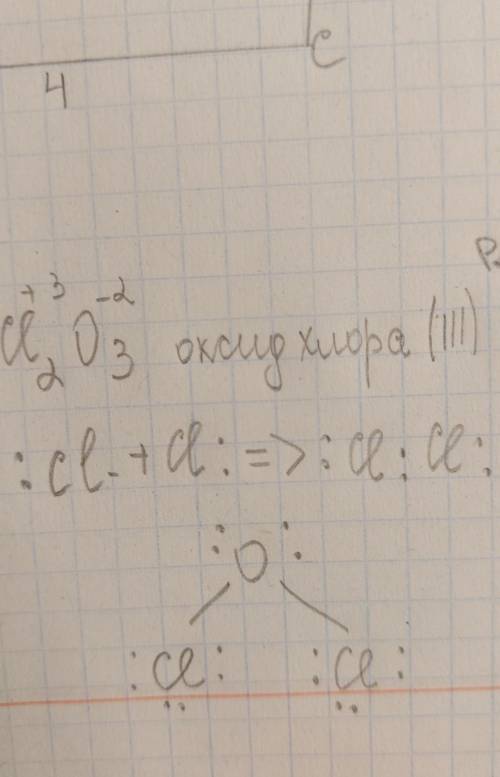 C
4
Cl₂⁺³O₃⁻² оксид хлора (III)
:Cl· + Cl: => :Cl:Cl:
:O:
:Cl: :Cl: